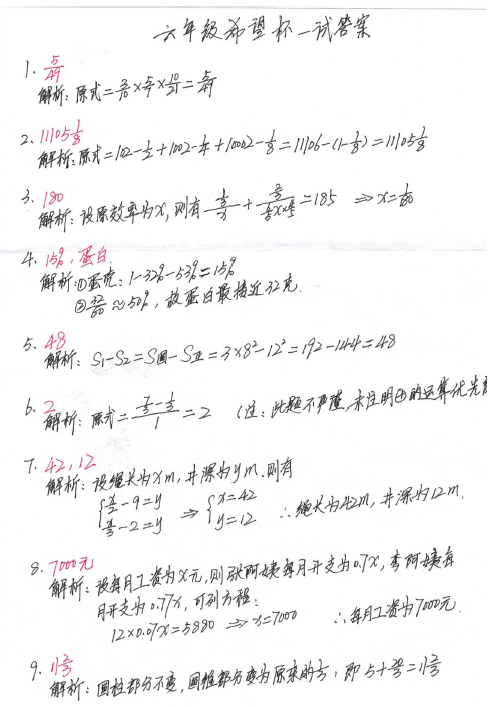 六年级希望杯一试答案
1. 5/49
解析: 原式=3/10×5/7×10/21=5/49
2. 11105 1/8
解析: 原式=102-1/2+1002-1/4+10002-1/8=11106-(1-1/8)=11105 1/8
3. 180
解析: 设原效率为x, 则有
=185 ⇒ x=1/180
4. 15%, 蛋白.
解析: ①蛋壳: 1-32%-53%=15%
②32/60≈50%, 故蛋白最接近32克.
5. 48
解析: S1-S2=S圆-S正=3×8²-12²=192-144=48
6. 2
解析: 原式= =2 (注: 此题不严谨, 未注明⊕的运算优先
7. 42, 12
解析: 设绳长为xm, 井深为ym. 则有
{x/2-9=y ⇒ {x=42 ∴绳长为42m, 井深为12m.
{x/3-2=y {y=12
8. 7000元
解析: 设每月工资为x元, 则张阿姨每月开支为0.7x, 李阿姨每
月开支为0.77x, 可列方程:
12×0.07x=5880 ⇒ x=7000 ∴每月工资为7000元.
9. 11 2/3
解析: 圆柱部分不变, 圆锥部分变为原来的1/3, 即 5+20/3=11 2/3